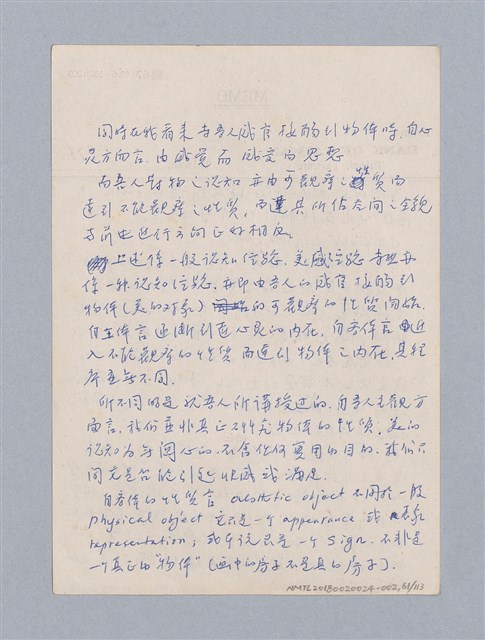 同時在我看來當吾人感官接觸到物件時,自心
灵方面言,由感覺而感受而思想
而吾人對物之認知亦由可觀察之性質而
達引不能觀察之性質,而達其所佔空間之全貌
与前也進行方向正好相反。
上述係一般認知經驗,美感經驗亦
係一種認知經驗,亦即由吾人的感官接觸到
物件(美的對象)的可觀察的性質開始,
自主体言逐漸引進心灵的内在,自客体言進
入不能觀察的性質而達到物件之内在,其程
序並無不同。
所不同的是就吾人所講授过的,自吾人主觀方
面言,我们並非真正研究物件的性質,美的
認知为無関心的,不含任何實用的目的,我们只
問究是否能引起快感或满足。
自客体的性質言 aesthetic object 不同於一般
physical object 它只是一个 appearance 或
representation;或平說只是一个 sign,不非是
一个真正的"物件"(画中的房子不是真的房子)。
NMTL20180020024-002,61/113